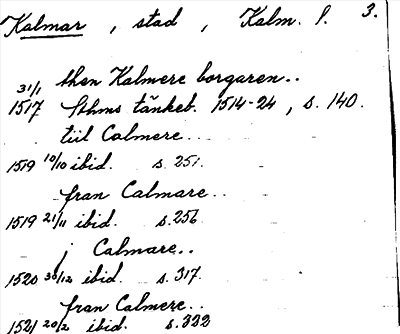 Kalmar, stad, Kalm. l. 3.
then Kalmere borgaren..
31/1
1517 Sthms tänkeb. 1514-24, s. 140.
tiil Calmere...
1519 10/10 ibid. s. 251.
fran Calmare..
1519 21/11 ibid. s. 256
j Calmare..
1520 30/12 ibid. s. 317.
fran Calmere..
1521 20/2 ibid. s. 322